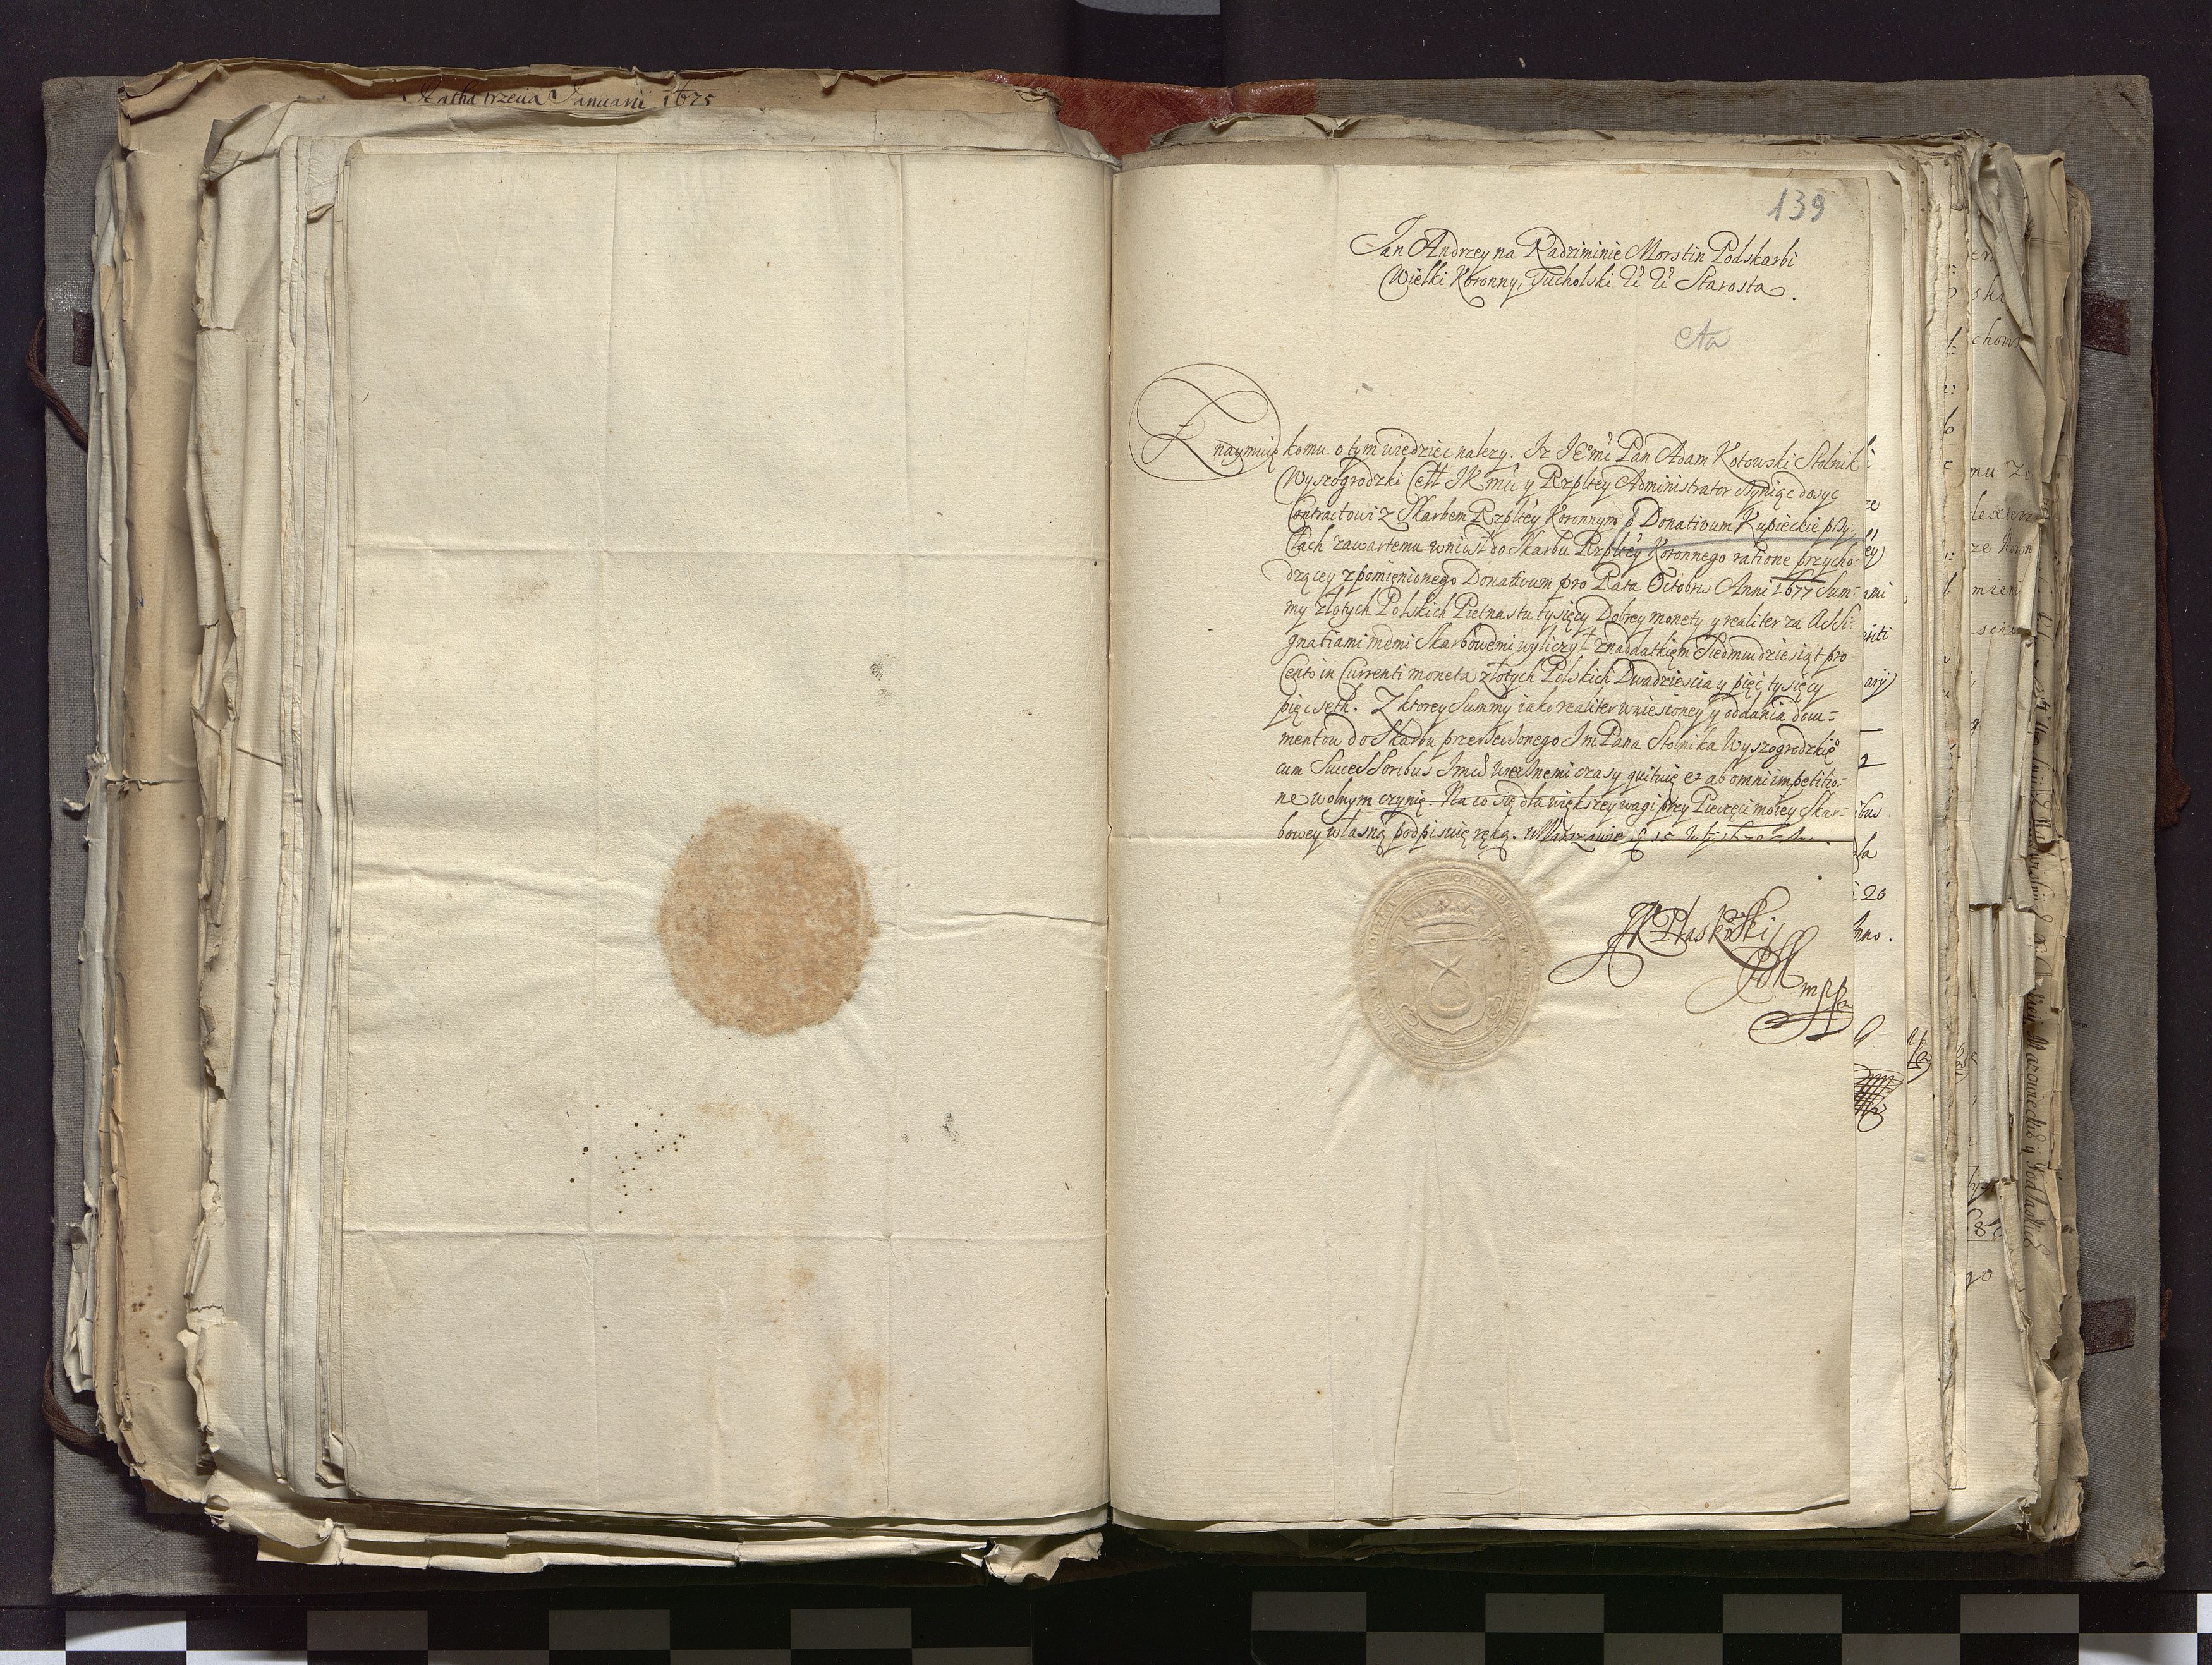 Ratha trzecia Januarii 1675
139
Jan Andrzey na Radziminie Morstin Podskarbi
Wielki Koronny, Tucholski &c &c Starosta.
cta
Znaymuię komu o tym wiedzieć nalezy. Iz JEoͫmć Pan Adam Kotowski Stolnik
Wyszogrodzki Cełł JKmći y Rzpltey Administrator czyniąc dosyć
Contractowi z Skarbem Rzpltey Koronnym o Donativum Kupieckie przy
Cłach zawartemu wniosł do Skarbu Rzpltey Koronnego ratione przycho:
dzącey z pomięnionego Donativum pro Rata Octobris Anni 1677 Sum:
my złotych Polskich Pietnastu tysięcy Dobrey monety y realiter za Assi:
gnatiami memi Skarbowemi wyliczył z naddatkięm Siedmudziesiąt pro
Cento in Currenti moneta złotych Polskich Dwadziescia y pięć tysięcy
pięćseth. Z ktorey Summy iako realiter wniesioney y oddania docu=
mentow do Skarbu przerzeczonego Jm Pana Stolnika Wyszogrodzkiego
cum Successoribus Jmći wiecznemi czasy quituię et ab omni impetitio:
ne wolnym czynię. Na co się dla większey wagi przy Pieczęci moiey Skar=
bowey własną podpisuię ręką. w Warszawie d. 15 July